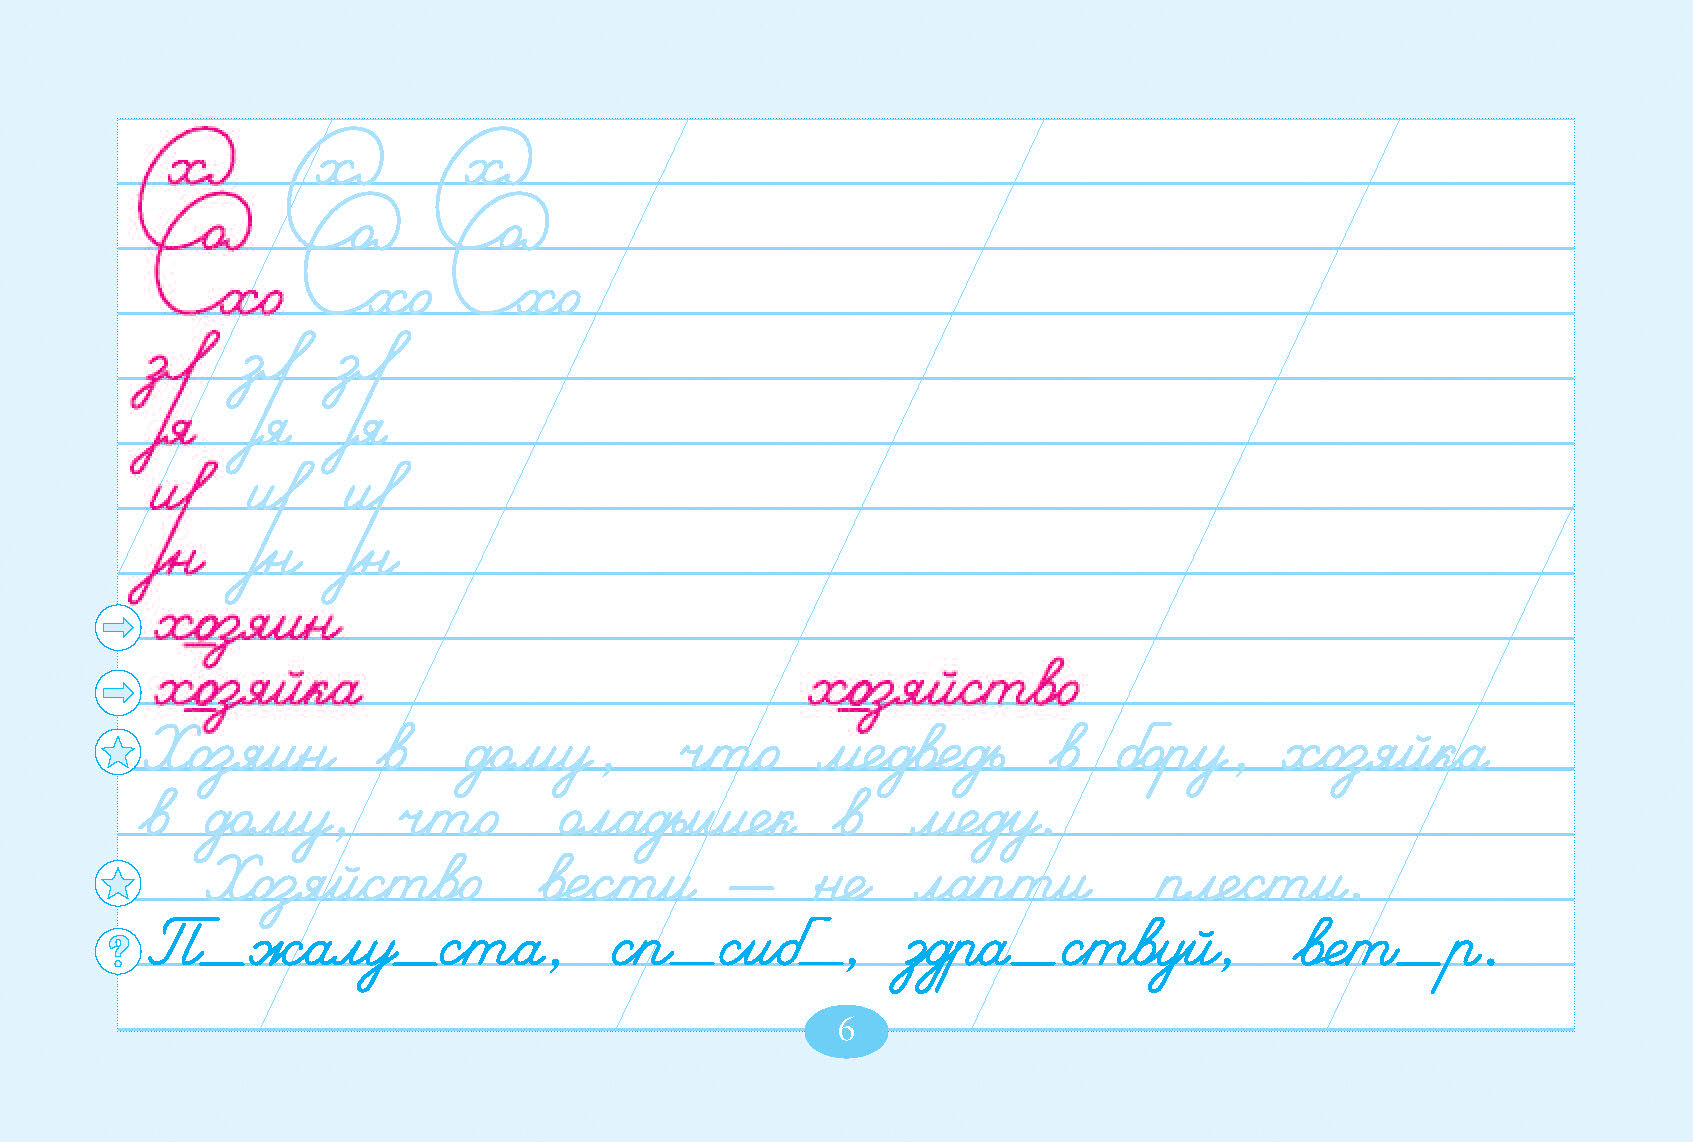 х х х
а а а
хо хо хо
зр зр зр
я я я
ир ир ир
н н н
хозяин
хозяйка хозяйство
Хозяин в дому, что медведь в бору, хозяйка
в дому, что оладышек в меду.
Хозяйство вести — не лапти плести.
П_жалу_ста, сп_сиб_, здра_ствуй, вет_р.
6